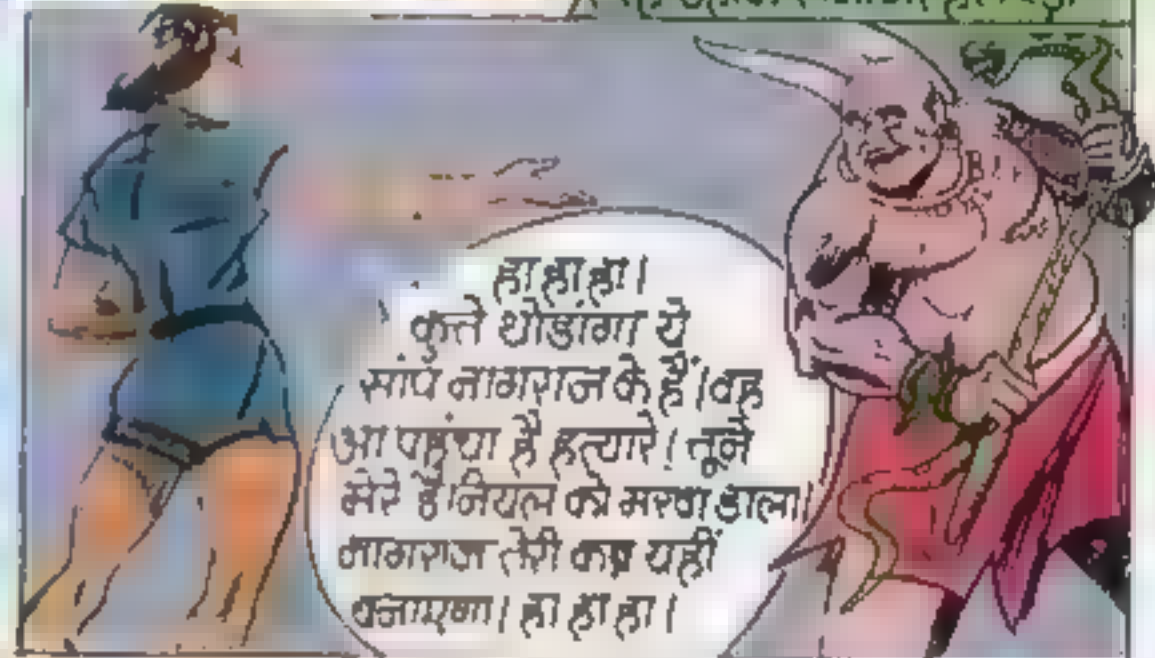 हा हा हा।
कुत्ते थोडांगा ये
सांप नागराज के हैं। वह
आ पहुंचा है हत्यारे! तूने
मेरे डेनियल को मरवा डाला।
नागराज तेरी कब्र यहीं
बनाएगा। हा हा हा।